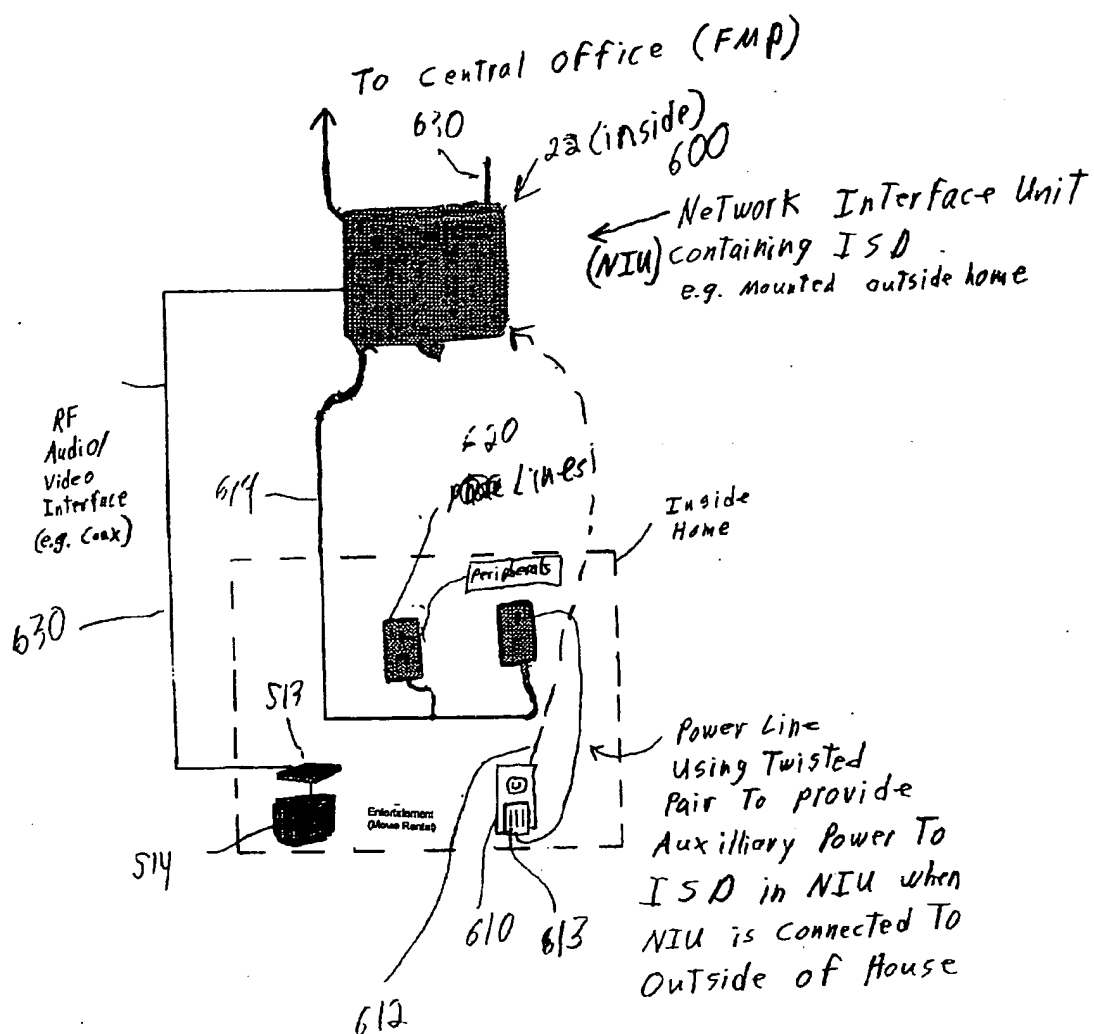 To Central Office (FMP)
630
22 (inside)
600
Network Interface Unit
(NIU) containing ISD
e.g. Mounted outside home
RF
Audio/
Video
Interface
(e.g. Coax)
614
620
Lines
Inside
Home
Peripherals
630
513
514
Entertainment
(Movie Rental)
610
613
612
Power Line
Using Twisted
Pair To provide
Auxilliary Power To
ISD in NIU when
NIU is connected To
Outside of House